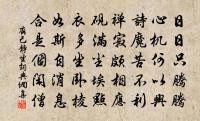 日日只騰騰
心機何以興
詩魔苦不利
禪寂頗相應
硯滿塵埃點
衣多坐臥稜
如斯自消息
合是個閒僧
齊己靜坐詞典網書